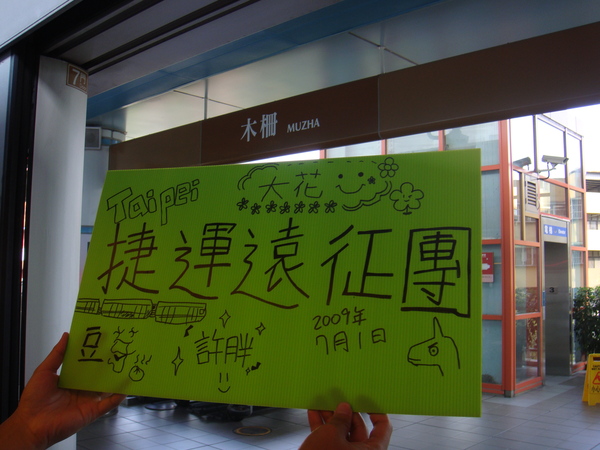 木柵 MUZHA
Taipei
大花
捷運遠征團
豆芽
許胖
2009年
7月1日